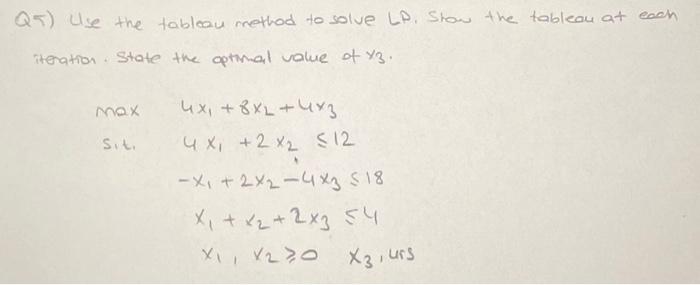 Q5) Use the tableau method to solve LP. Show the tableau at each
iteration. State the optimal value of x3.
max 4x1 + 8x2 + 4x3
s.t. 4x1 + 2x2 ≤ 12
-x1 + 2x2 - 4x3 ≤ 18
x1 + x2 + 2x3 ≤ 4
x1, x2 ≥ 0 x3, urs